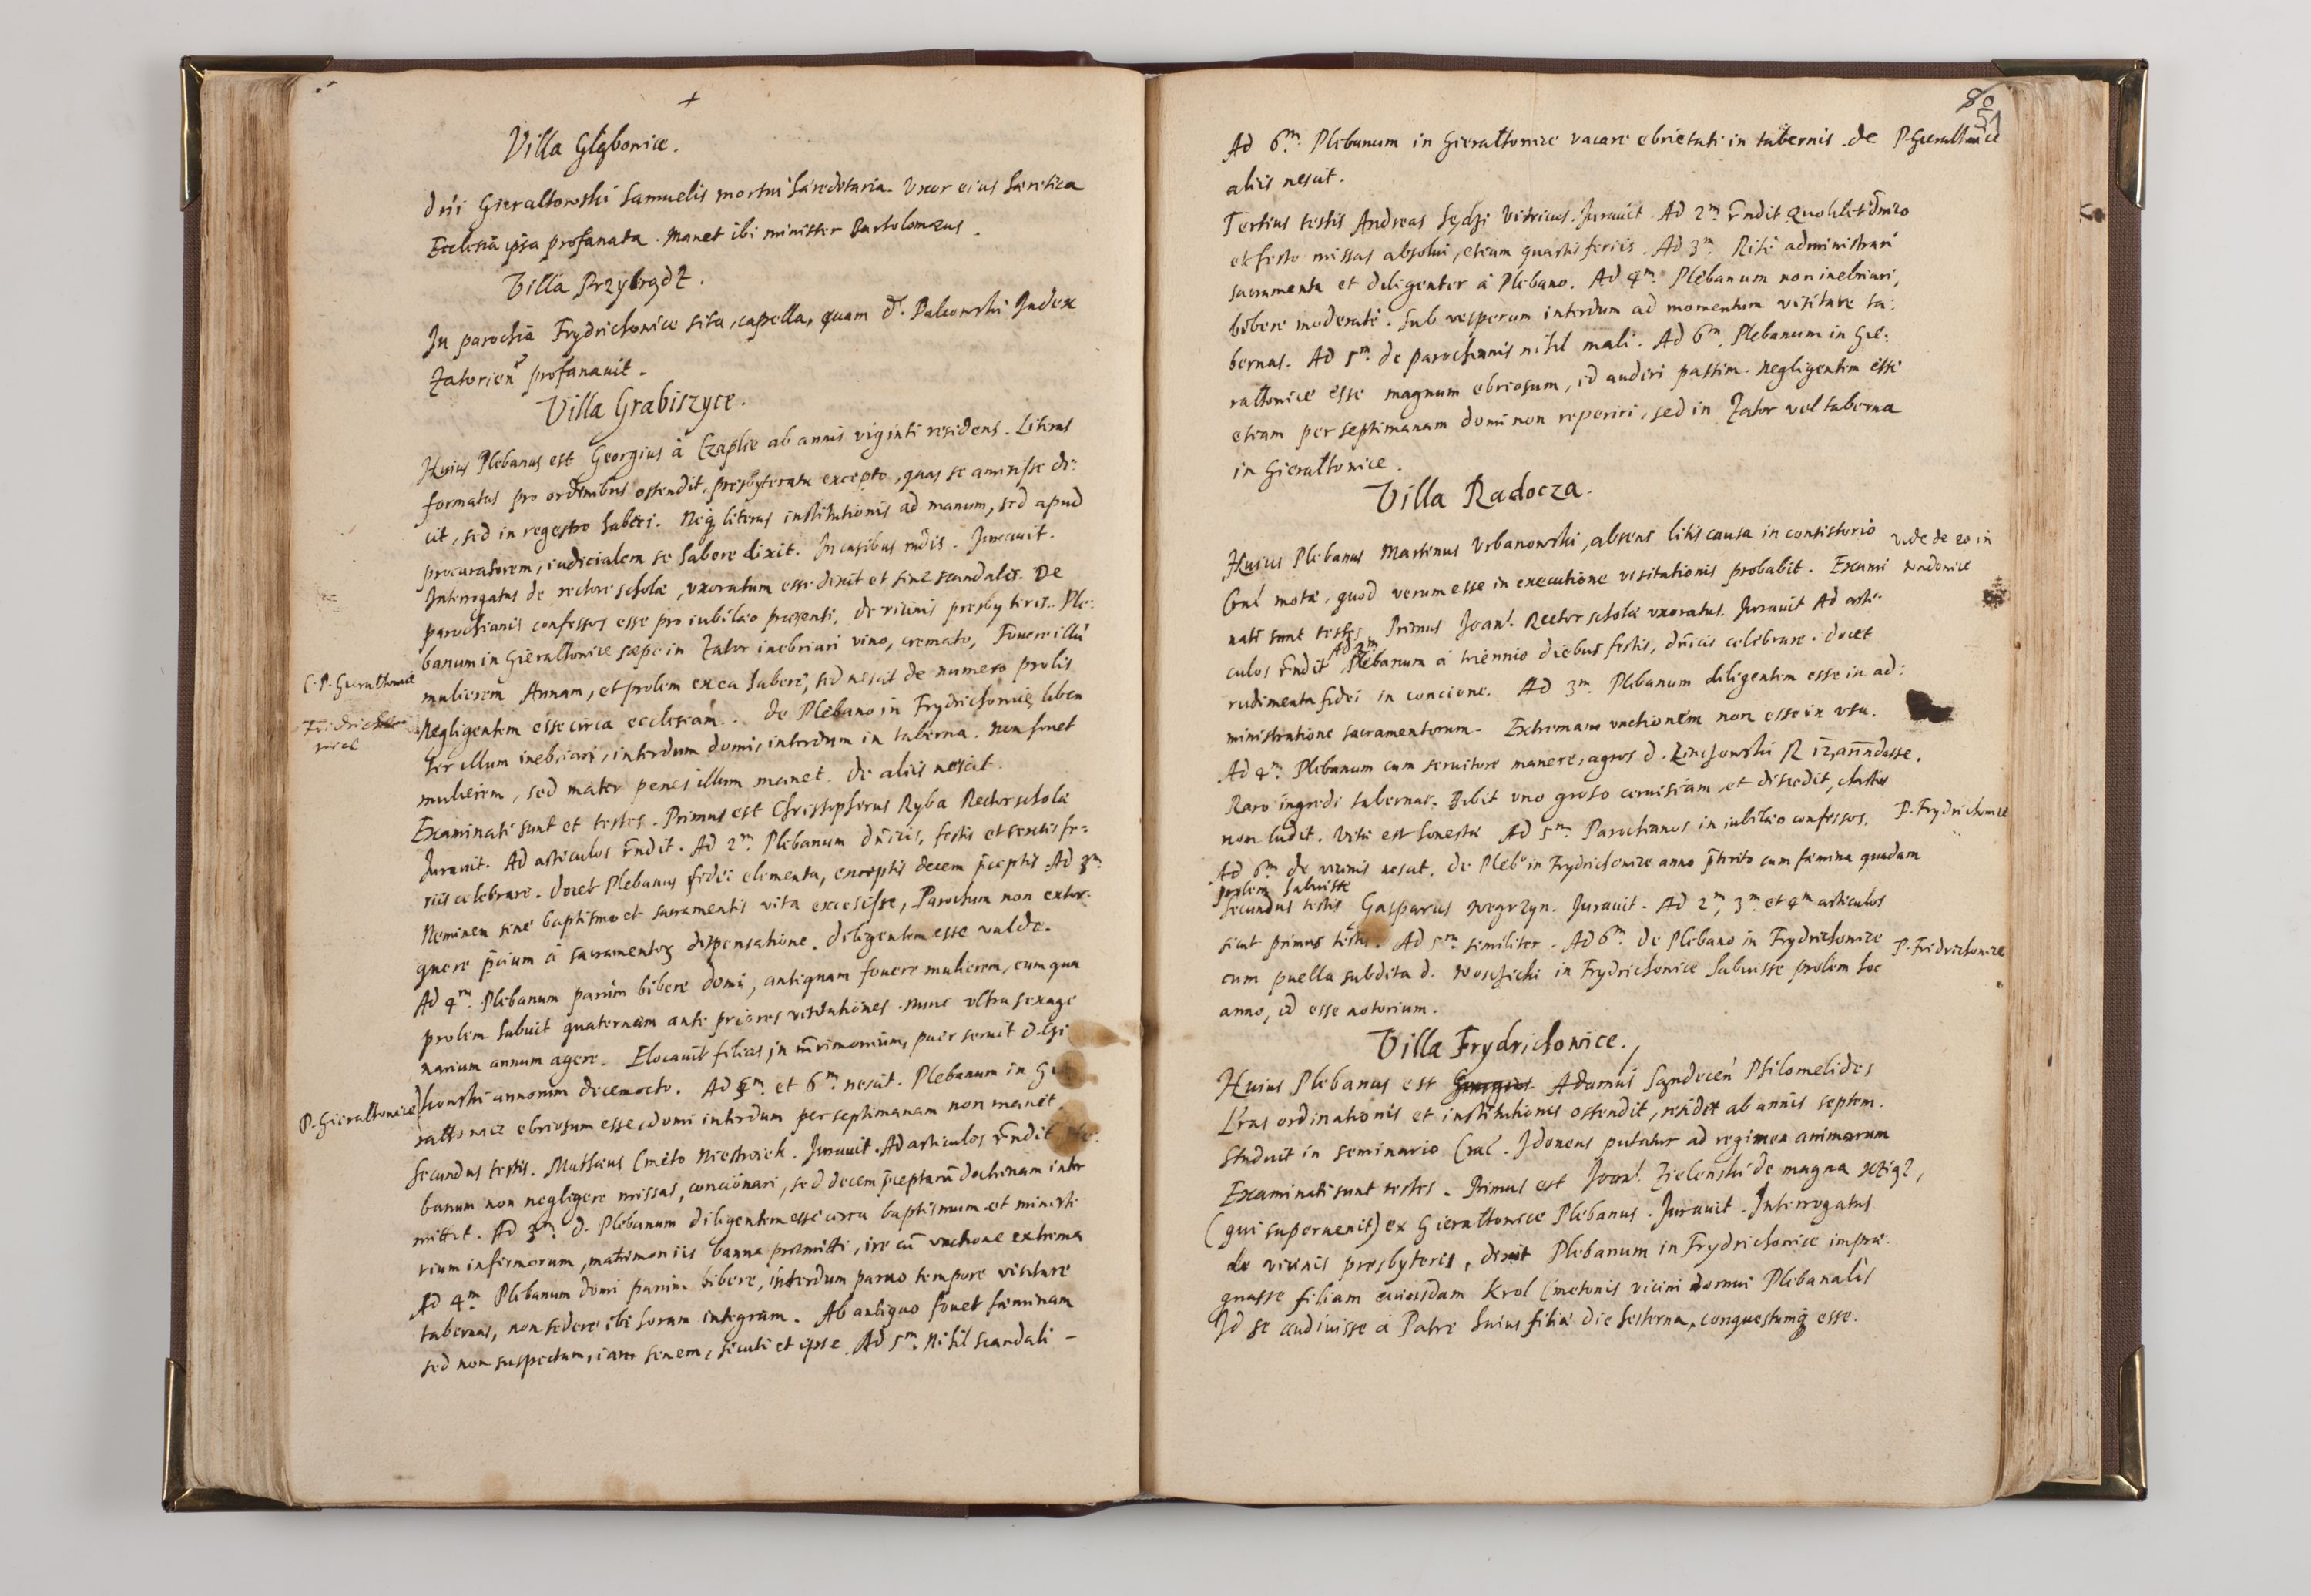 Villa Glębonice.
dńi Gieraltowski Samuelis mortui haereditaria. Uxor eius haeretica
Ecclesia ipsa profanata. Manet ibi minister Bartolomaeus.
Villa Przybradz.
In parochia Frydrichowice sita, capella, quam d. Palcowski Judex
Zatorien profanavit.
Villa Grabiszyce.
Huius Plebanus est Georgius à Czaplie ab annis viginti residens. Literas
formatas pro ordinibus ostendit, presbyteratu excepto, quas se amisisse di:
cit, sed in regestro haberi. Neq literas institutionis ad manum, sed apud
procuratorem, iudicialem se habere dixit. In casibus rudis. Iuravit.
Interrogatus de rectore scholae, uxoratum esse dixit et sine scandalis. De
parochianis confessos esse pro iubilaeo praesenti, de vicinis presbyteris. Ple:
banum in Gieraltowice saepe in Zator inebriari vino, cremato, Fovere illū
C. P. Gieraltowice
mulierem Annam, et prolem ex ea habere, sed nescit de numero prolis
Negligentem esse circa ecclesiam. de Plebano in Frydrichowice, liben
Fridricho
wice
ter illum inebriari, interdum domi, interdum in taberna. Non fovet
mulierem, sed mater penes illum manet. de aliis nescit.
Examinati sunt et testes. Primus est Christopherus Ryba Rector scholae
Juravit. Ad articulos rñdit. Ad 2m. Plebanum dńicis, festis et sextis fe:
riis celebrare. docet Plebanus fidei elementa, exceptis decem pceptis. Ad 3m.
Neminem sine baptismo et sacramentis vita excessisse, Parochum non extor:
quere pcium à sacramentoꝝ dispensatione. diligentem esse valde.
Ad 4m. Plebanum parum bibere domi, antiquam fovere mulierem, cum qua
prolem habuit quaternam ante priores visitationes. nunc ultra sexage
narium annum agere. Elocavit filias in mrimonium, puer servit d. Gi
kowski annorum decem octo. Ad 5m. et 6m. nescit. Plebanum in Gie
P. Gieraltowice
raltowice ebriosum esse, domi interdum per septimanam non manet.
Secundus testis. Mathaeus Cmeto Niestroiek. Juravit. Ad articulos rñdit Ple:
banum non negligere missas, concionari, sed decem pceptorū doctrinam inter
mittit. Ad 3m. d. Plebanum diligentem esse circa baptismum et ministe
rium infirmorum, matrimoniis banna praemitti, ire cū unctione extrema
Ad 4m. Plebanum domi parum bibere, interdum parvo tempore visitare
tabernas, non sedere ibi horam integram. Ab antiquo fovet faeminam
sed non suspectam, iam senem, sicuti et ipse. Ad 5m. Nihil scandali -
80
51
Ad 6m. Plebanum in Gieraltowice vacare ebrietati in tabernis. de
P. Gieraltowice
aliis nescit.
Tertius testis Andreas Sędzi Vitricus. Juravit. Ad 2m. rñdit quolibet dńico
et festo missas absolvi, etiam quartis feriis. Ad 3m. Rite administrari
sacramenta et diligenter à Plebano. Ad 4m. Plebanum non inebriari,
bibere moderate. Sub vesperam interdum ad momentum visitare ta:
bernas. Ad 5m. de parochianis nihil mali. Ad 6m. Plebanum in Gie:
raltowice esse magnum ebriosum, id audiri passim. Negligentem esse
etiam per septimanam domi non reperiri, sed in Zator vel taberna
in Gieraltowice.
Villa Radocza.
Huius Plebanus Martinus Urbanowski, absens litis causa in consistorio
Vide de eo in
Cral motae, quod verum esse in executione visitationis probabit. Exami
wondowice
nati sunt testes. Primus Joan. Rector scholae uxoratus. Juravit Ad arti:
culos rñdit Ad 2m Plebanum à triennio diebus festis, dńicis celebrare. docet
rudimenta fidei in concione. Ad 3m. Plebanum diligentem esse in ad:
ministratione sacramentorum. Extremam unctionem non esse in usu.
Ad 4m. Plebanum cum servitore manere, agros d.
Raro ingredi tabernas. Bibit uno grosso cervisiam, et discedit, chartis
non ludit. Vita est honesta Ad 5m. Parochianos in iubilaeo confessos.
P. Frydrichowice
Ad 6m. de vicinis nescit. de Plebo in Frydrichowice anno pterito cum faemina quadam
prolem habuisse
Secundus testis Gasparus Wegrzyn. Juravit. Ad 2m, 3m. et 4m articulos
sicut primus testis. Ad 5m. similiter. Ad 6m. de Plebano in Frydrichowice
P. Fridrichowice
cum puella subdita d. in Frydrichowice habuisse prolem hoc
anno, id esse notorium.
Villa Frydrichowice.
Huius Plebanus est Georgius Adamus Sandecen Philomelides
Lras ordinationis et institutionis ostendit, residet ab annis septem.
Studuit in seminario Cral. Idoneus putatur ad regimen animarum
Examinati sunt testes. Primus est Joan. Zielenski de magna
(qui supervenit) ex Gieraltowice Plebanus. Juravit. Interrogatus
de vicinis presbyteris, dixit Plebanum in Frydrichowice imprae:
gnasse filiam cuiusdam Krol Cmetonis vicini domui Plebanalis
Id se audivisse à Patre huius filiae die hesterna, conquestumq esse.